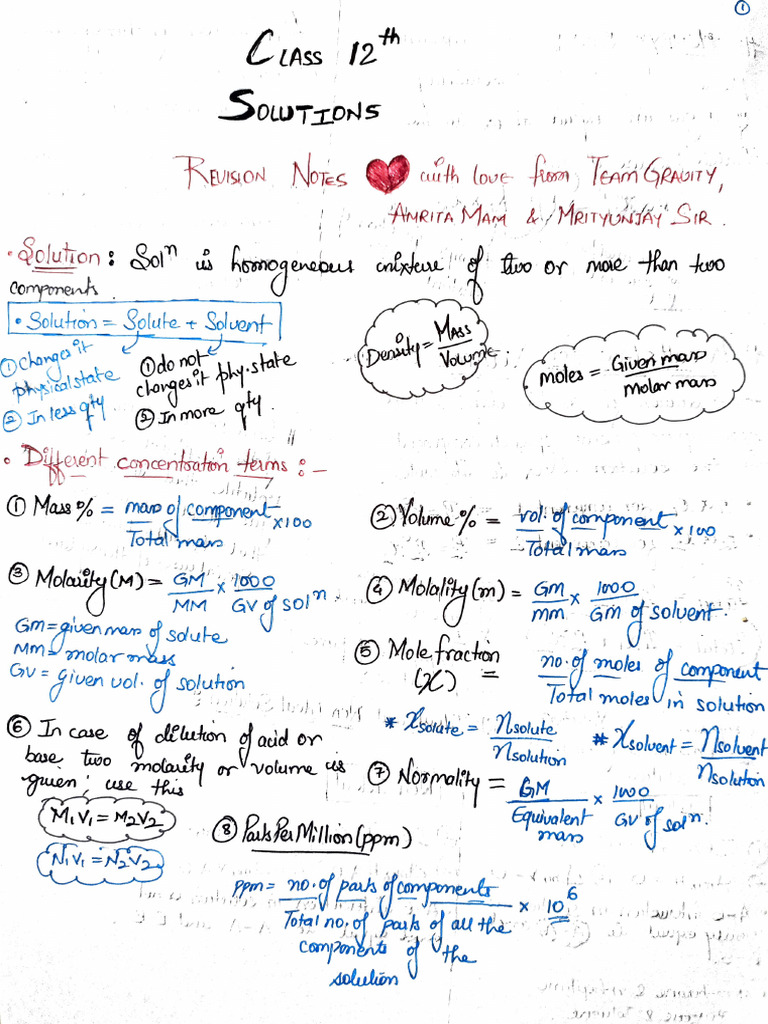 ①
CLASS 12th
SOLUTIONS
REVISION NOTES ❤ with love from TEAM GRAVITY,
AMRITA MAM & MRITYUNJAY SIR.
• Solution : Solⁿ is homogeneous mixture of two or more than two
components.
• Solution = Solute + Solvent
① Changes it
physical state
② In less qty
① do not
changes it phy. state
② In more qty.
Density = Mass / Volume
moles = Given mass / molar mass
• Different concentration terms :-
① Mass % = mass of component / Total mass × 100
② Volume % = vol. of component / Total mass × 100
③ Molarity (M) = GM / MM × 1000 / GV of solⁿ
GM = given mass of solute
MM = molar mass
GV = given vol. of solution
④ Molality (m) = GM / mm × 1000 / GM of solvent.
⑤ Mole fraction
(χ) = no. of moles of component / Total moles in solution
* χsolute = nsolute / nsolution
* χsolvent = nsolvent / nsolution
⑥ In case of dilution of acid or
base two molarity or volume is
given, use this
M₁V₁ = M₂V₂
N₁V₁ = N₂V₂
⑦ Normality = GM / Equivalent mass × 1000 / GV of solⁿ.
⑧ Parts Per Million (ppm)
ppm = no. of parts of components / Total no. of parts of all the
components of the
solution
× 10⁶